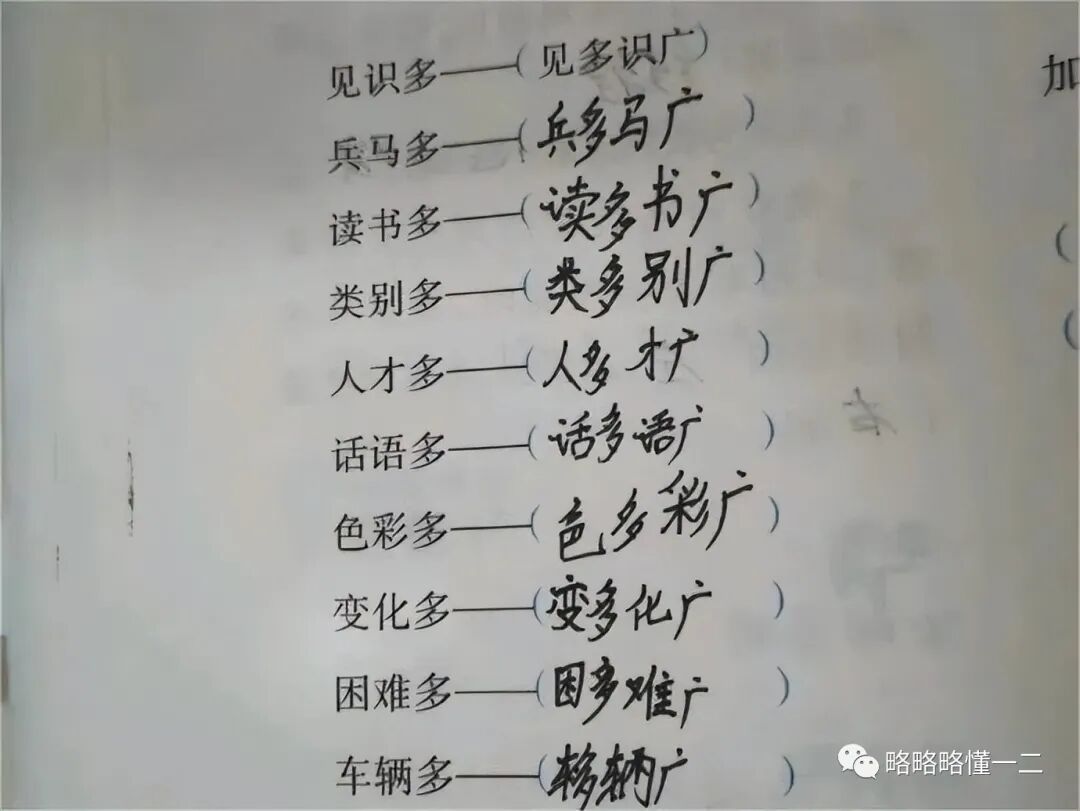 见识多——(见多识广)
加
兵马多——(兵多马广)
读书多——(读多书广)
(
类别多——(类多别广)
(
人才多——(人多才广)
话语多——(话多语广)
色彩多——(色多彩广)
变化多——(变多化广)
困难多——(困多难广)
车辆多——(车多辆广)
略略略懂一二